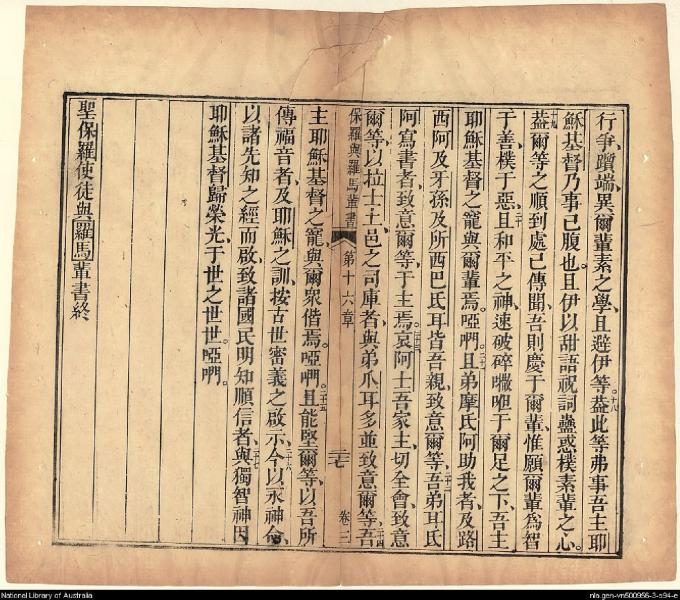 行爭躓端、異爾輩素之學、且避伊等。十八葢此等弗事吾主耶
穌基督乃事己腹也。且伊以甜語祝詞蠱惑樸素輩之心。
十九葢爾等之順到處已傳聞、吾則慶于爾輩、惟願爾輩為智
于善、樸于惡。二十且和平之神、速破碎㘔咃于爾足之下、吾主
耶穌基督之寵與爾輩焉。啞們。二十一且弟摩氏阿助我者、及路
西阿及牙孫及所西巴氏耳皆吾親、致意爾等。二十二吾弟耳氏
阿寫書者、致意爾等于主焉。二十三哀阿士吾家主、切全會、致意
爾等、以拉士土、邑之司庫者、與弟爪耳多並致意爾等。二十四吾
保羅與羅馬輩書 第十六章 二十七 卷三
主耶穌基督之寵、與爾眾偕焉。啞們。二十五且能堅爾等、以吾所
傳福音者、及耶穌之訓、按古世密義之啟示、二十六今以永神命、
以諸先知之經而啟、致諸國民明知順信者、二十七與獨智神因
耶穌基督歸榮光、于世之世世。啞們。
聖保羅使徒與羅馬輩書終
National Library of Australia
nla.gen-vn500956-3-s94-e